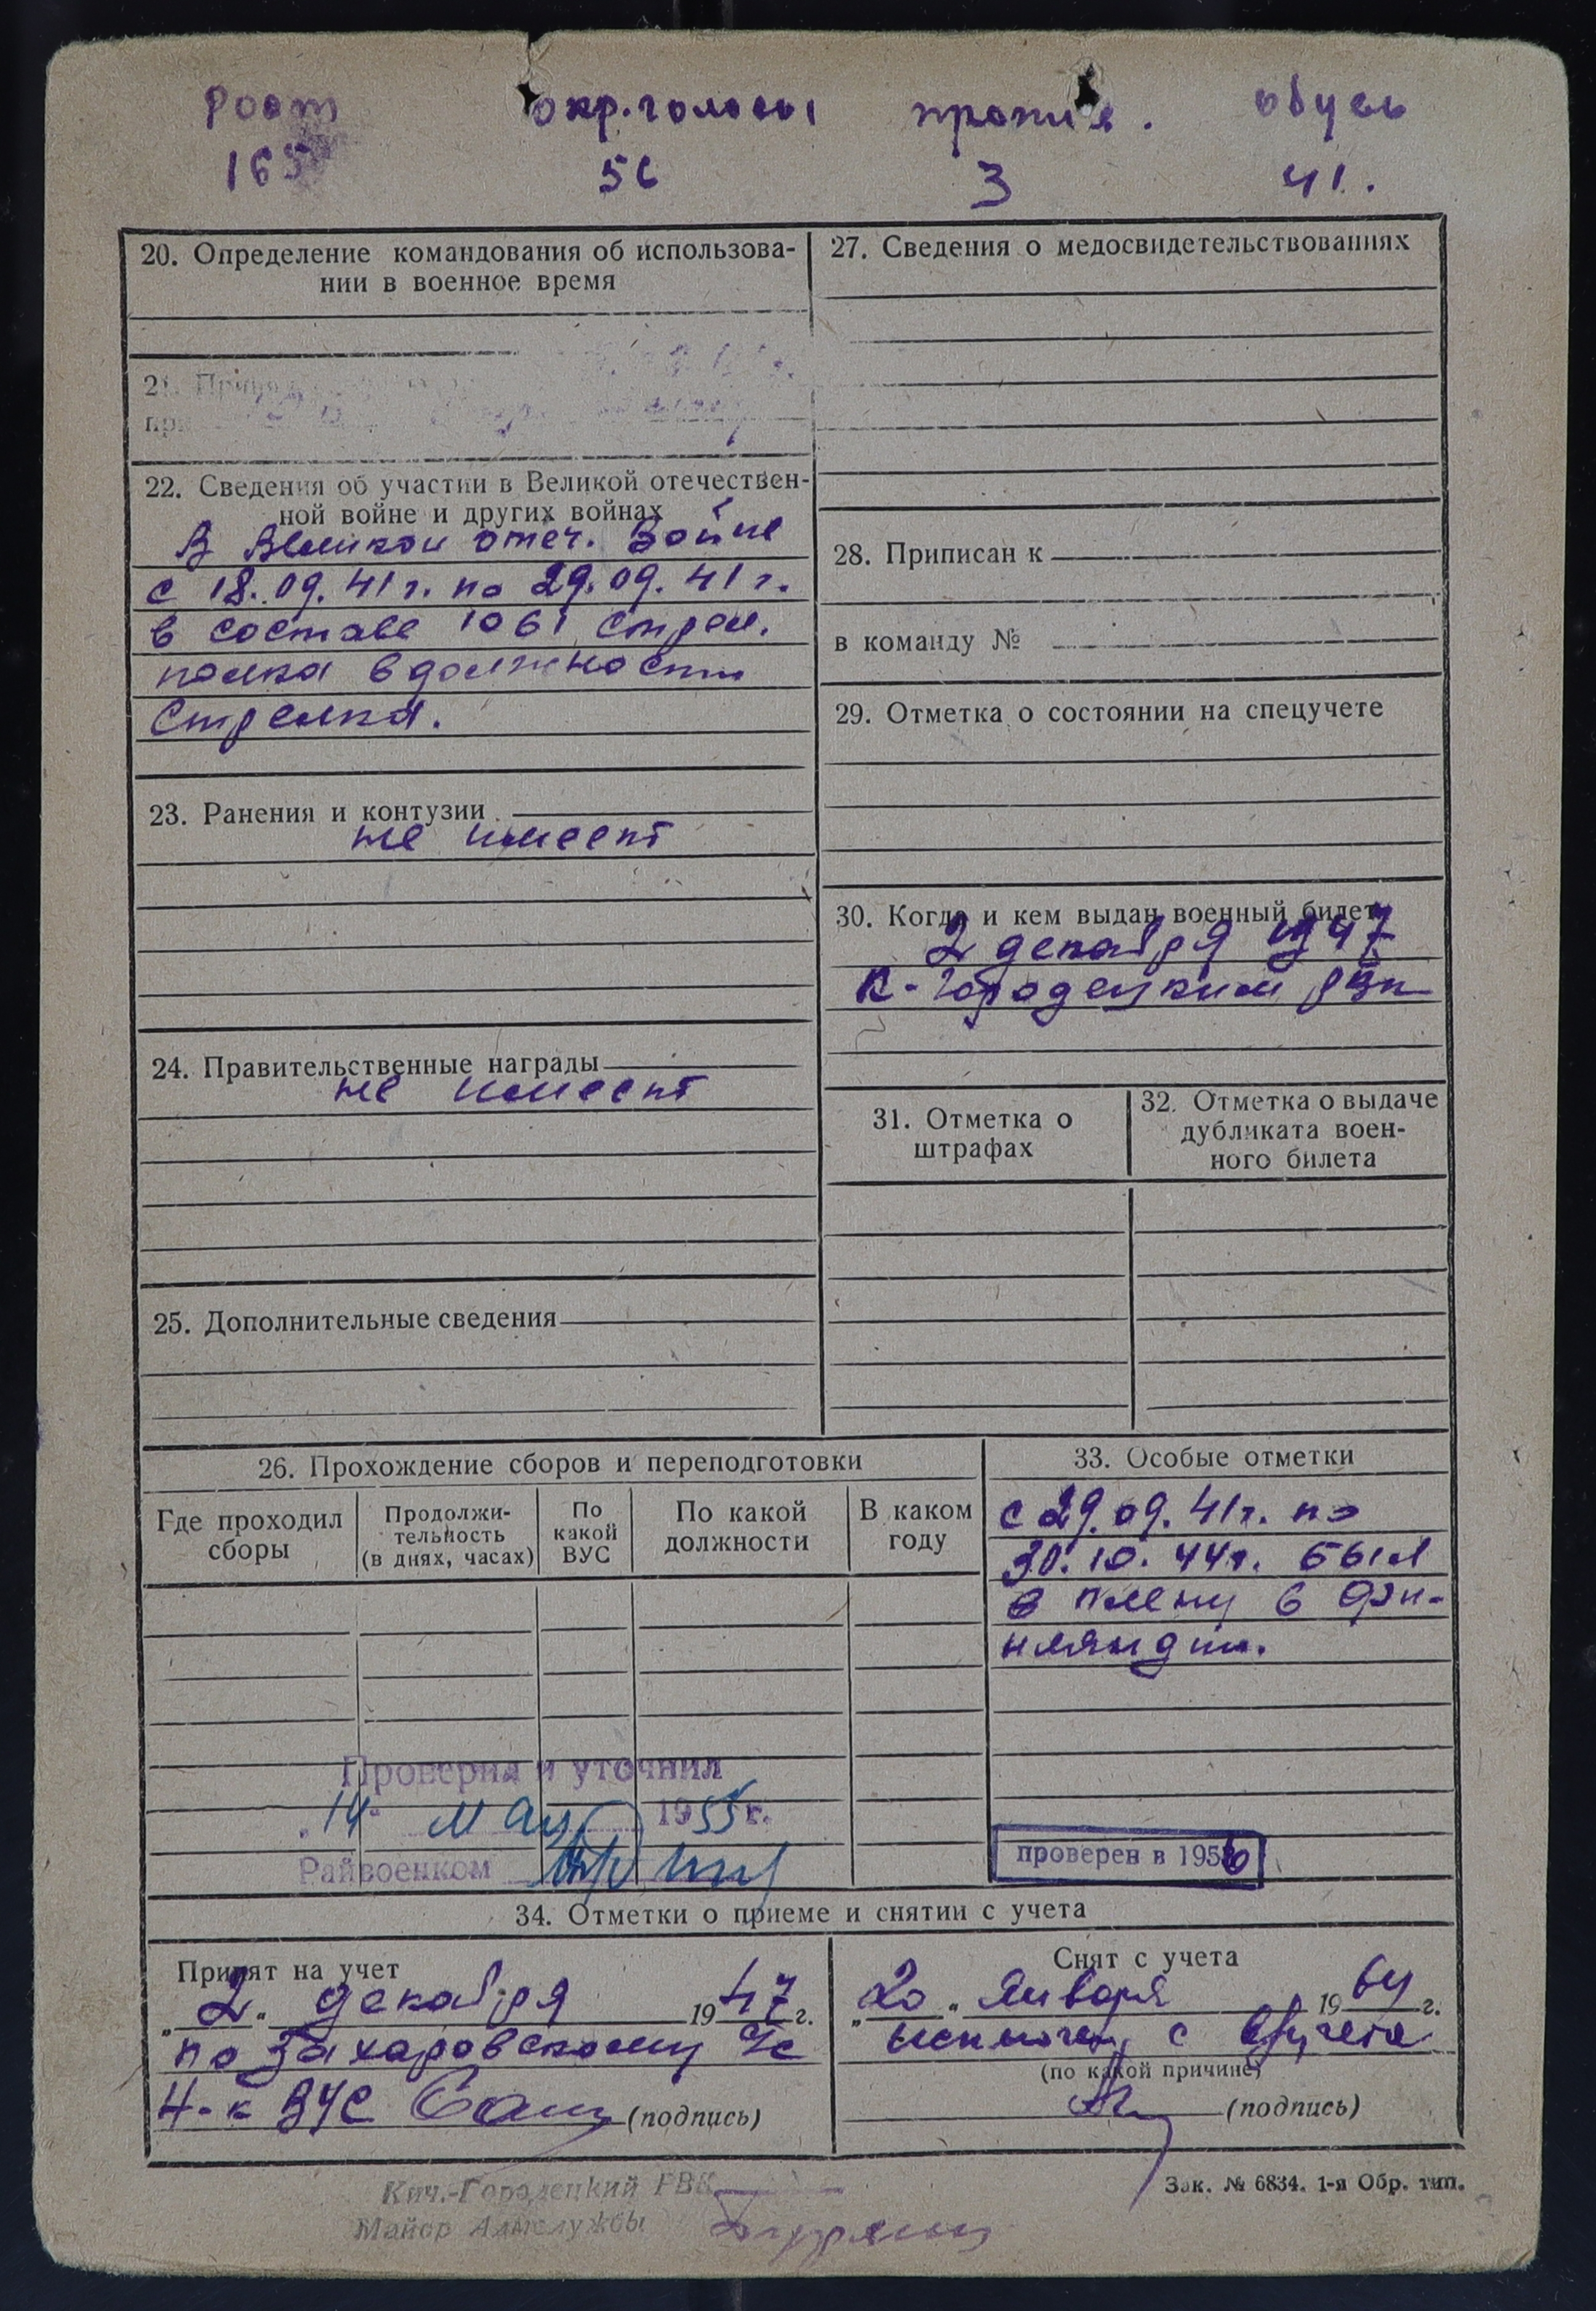 рост окр. головы против. обувь
165 56 3 41.
20. Определение командования об использова-
нии в военное время
21.
22. Сведения об участии в Великой отечествен-
ной войне и других войнах
В Великой отеч. войне
с 18.09.41 г. по 29.09.41 г.
в составе 1061 стрел.
полка в должности
стрелка.
23. Ранения и контузии
не имеет
24. Правительственные награды
не имеет
25. Дополнительные сведения
27. Сведения о медосвидетельствованиях
28. Приписан к
в команду №
29. Отметка о состоянии на спецучете
30. Когда и кем выдан военный билет
2 декабря 1947
К-Городецким рвк
31. Отметка о
штрафах
32. Отметка о выдаче
дубликата воен-
ного билета
26. Прохождение сборов и переподготовки
Где проходил
сборы
Продолжи-
тельность
(в днях, часах)
По
какой
ВУС
По какой
должности
В каком
году
Проверил и уточнил
14 мая 1955 г.
Райвоенком
33. Особые отметки
с 29.09.41г. по
30.10.44г. был
в плену в Фин-
ляндии.
проверен в 1956
34. Отметки о приеме и снятии с учета
Принят на учет
„2“ декабря 1947 г.
по Захаровскому с/с
Н-к ВУС (подпись)
Снят с учета
„20“ января 1964 г.
исключен с в/учета
(по какой причине)
(подпись)
Кич.-Городецкий РВК
Майор Адм.службы
Зак. № 6834. 1-я Обр. тип.